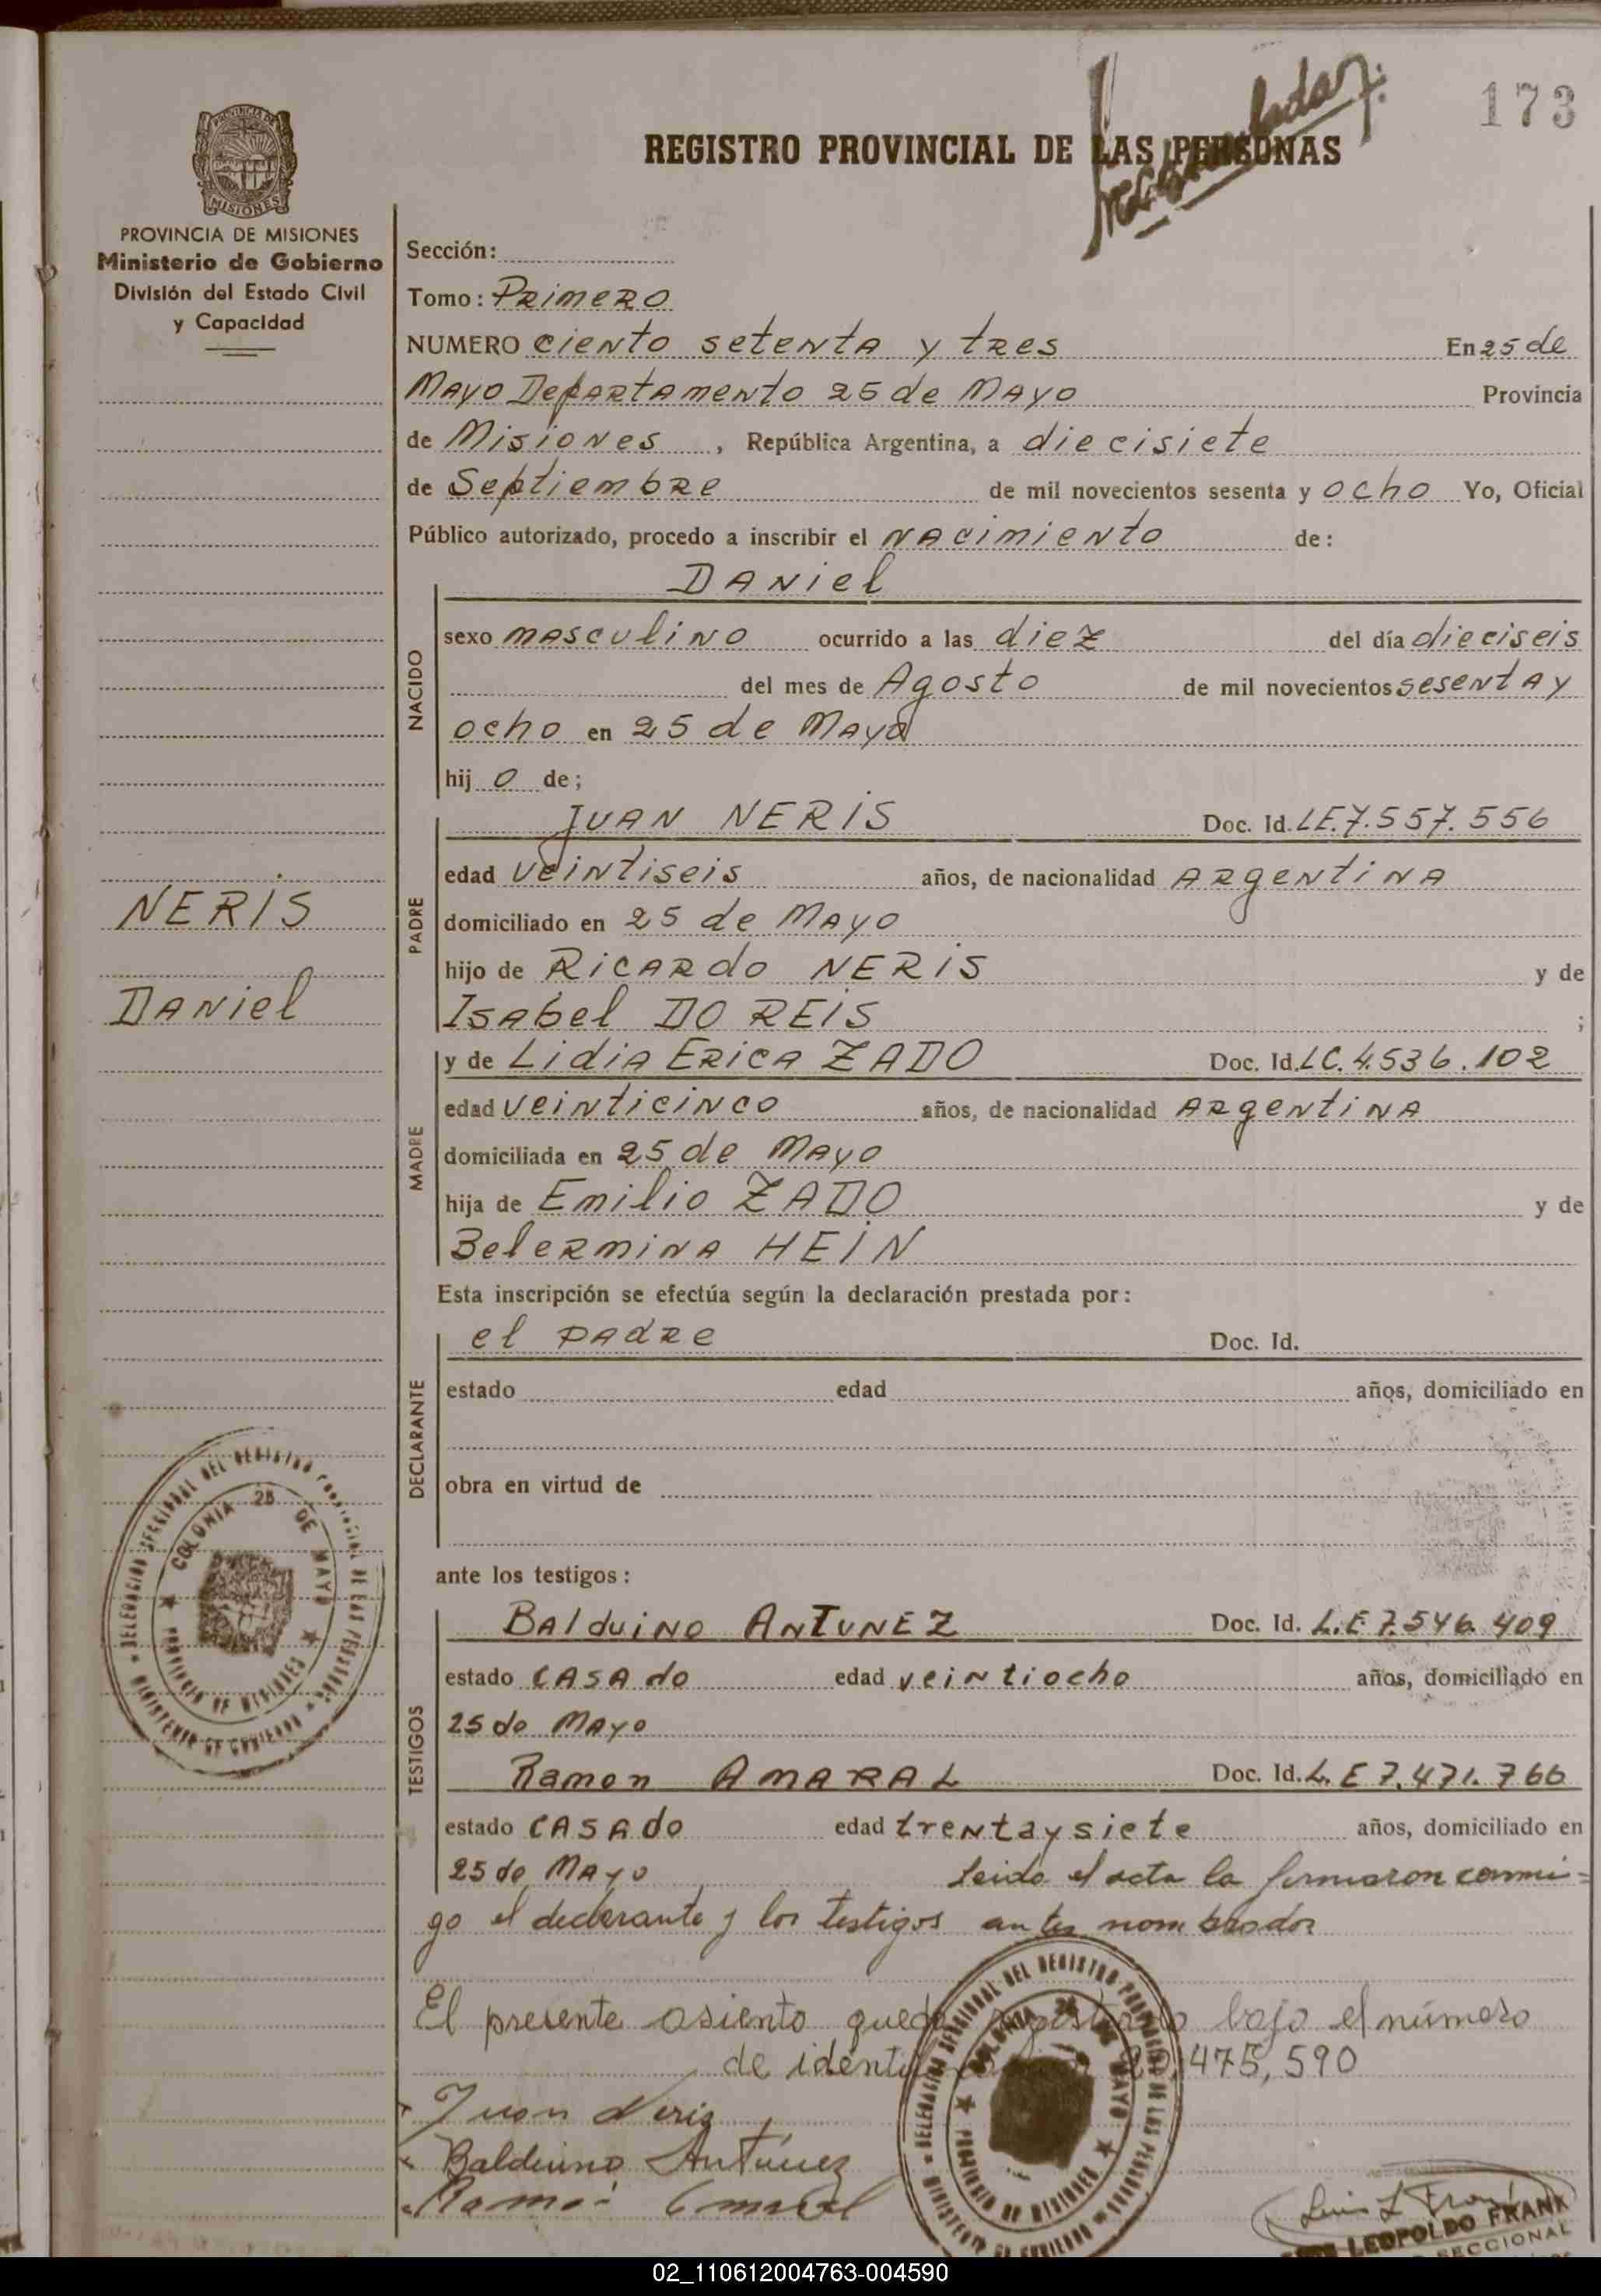 173
REGISTRO PROVINCIAL DE LAS PERSONAS
PROVINCIA DE MISIONES
Ministerio de Gobierno
División del Estado Civil
y Capacidad
Sección:
Tomo: Primero
NUMERO ciento setenta y tres En 25 de
Mayo Departamento 25 de Mayo Provincia
de Misiones, República Argentina, a diecisiete
de Septiembre de mil novecientos sesenta y ocho Yo, Oficial
Público autorizado, procedo a inscribir el nacimiento de:
NACIDO
Daniel
sexo masculino ocurrido a las diez del día dieciseis
del mes de Agosto de mil novecientos sesenta y
ocho en 25 de Mayo
hijo de;
PADRE
Juan NERIS Doc. Id. LE. 7.557.556
edad veintiseis años, de nacionalidad Argentina
domiciliado en 25 de Mayo
hijo de Ricardo NERIS y de
Isabel DO REIS ;
NERIS
Daniel
MADRE
y de Lidia Erica ZADO Doc. Id. LC. 4.536.102
edad veinticinco años, de nacionalidad Argentina
domiciliada en 25 de Mayo
hija de Emilio ZADO y de
Belermina HEIN
Esta inscripción se efectúa según la declaración prestada por:
DECLARANTE
el padre Doc. Id.
estado edad años, domiciliado en
obra en virtud de
ante los testigos:
TESTIGOS
Balduino ANTUNEZ Doc. Id. L.E 7.546.409
estado casado edad veintiocho años, domiciliado en
25 de Mayo
Ramon AMARAL Doc. Id. L.E 7.471.766
estado casado edad trentaysiete años, domiciliado en
25 de Mayo Leido el acta la firmaron conmi-
go el declarante y los testigos antes nombrados
El presente asiento queda registrado bajo el número
de 475,590
Juan Neris
Balduino Antúnez
LEOPOLDO FRANK
SECCIONAL
DELEGACION SECCIONAL DEL REGISTRO PROVINCIAL DE LAS PERSONAS
MINISTERIO DE GOBIERNO
COLONIA 25 DE MAYO
PROVINCIA DE MISIONES
02_110612004763-004590